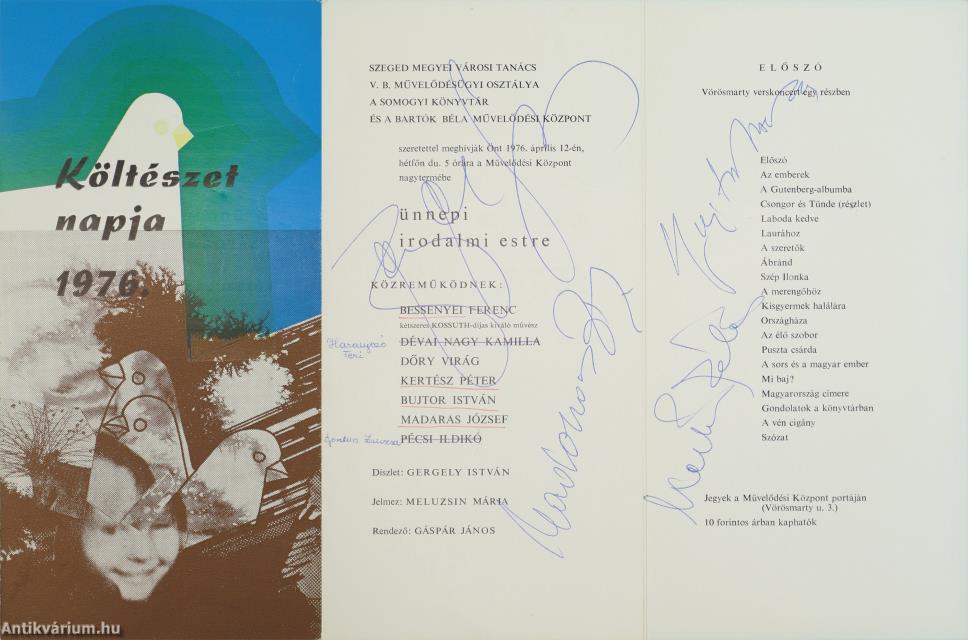 Költészet
napja
1976.
SZEGED MEGYEI VÁROSI TANÁCS
V. B. MŰVELŐDÉSÜGYI OSZTÁLYA
A SOMOGYI KÖNYVTÁR
ÉS A BARTÓK BÉLA MŰVELŐDÉSI KÖZPONT
szeretettel meghívják Önt 1976. április 12-én,
hétfőn du. 5 órára a Művelődési Központ
nagytermébe
ünnepi
irodalmi estre
KÖZREMŰKÖDNEK:
BESSENYEI FERENC
kétszeres KOSSUTH-díjas kiváló művész
Haranyozó
Teri
DÉVAI NAGY KAMILLA
DŐRY VIRÁG
KERTÉSZ PÉTER
BUJTOR ISTVÁN
MADARAS JÓZSEF
PÉCSI ILDIKÓ
Díszlet: GERGELY ISTVÁN
Jelmez: MELUZSIN MÁRIA
Rendező: GÁSPÁR JÁNOS
ELŐSZÓ
Vörösmarty verskoncert egy részben
Előszó
Az emberek
A Gutenberg-albumba
Csongor és Tünde (részlet)
Laboda kedve
Laurához
A szeretők
Ábránd
Szép Ilonka
A merengőhöz
Kisgyermek halálára
Országháza
Az élő szobor
Puszta csárda
A sors és a magyar ember
Mi baj?
Magyarország címere
Gondolatok a könyvtárban
A vén cigány
Szózat
Jegyek a Művelődési Központ portáján
(Vörösmarty u. 3.)
10 forintos árban kaphatók
Antikvárium.hu